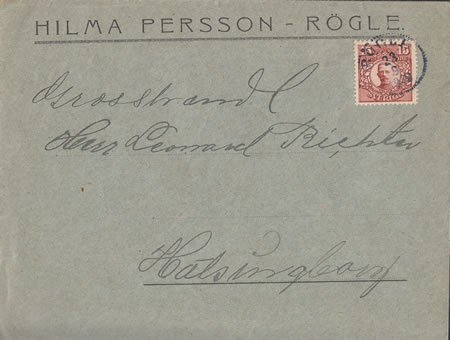 HILMA PERSSON - RÖGLE.
15
SVERIGE
Herr Leonard Richter
Helsingborg